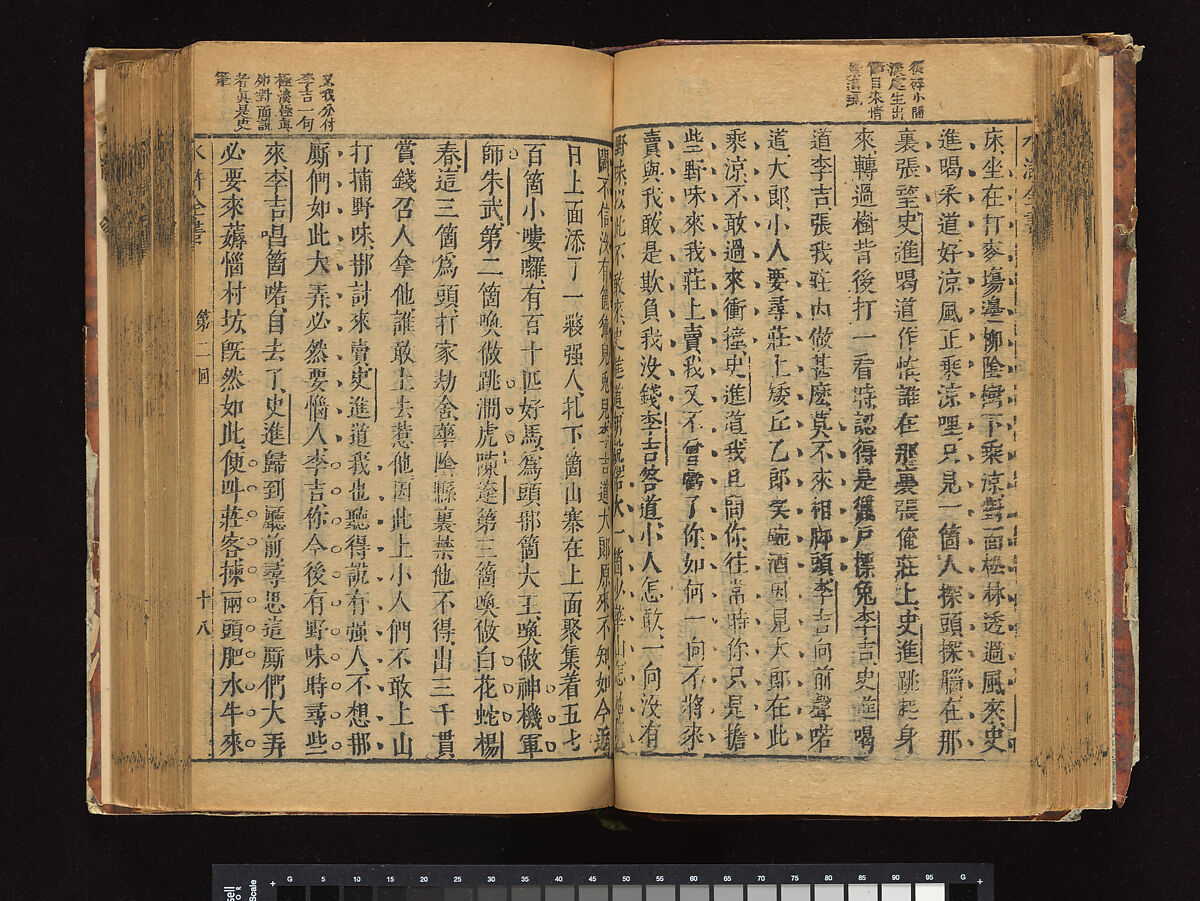 從碎小閒
漢處生出
節目來情
水滸全書
床坐在打麥塲邊柳陰樹下乘凉對面松林透過風來史
進喝采道好凉風正乘凉哩只見一箇人探頭探腦在那
裏張望史進喝道作怪誰在那裏張俺莊上史進跳起身
來轉過樹背後打一看時認得是獵戶摽兔李吉史進喝
道李吉張我莊內做甚麼莫不來相脚頭李吉向前聲喏
道大郎小人要尋莊上矮丘乙郎笑碗酒因見大郎在此
乘凉不敢過來衝撞史進道我且問你往常時你只是擔
些野味來我莊上賣我又不曾虧了你如何一向不將來
賣與我敢是欺負我沒錢李吉答道小人怎敢一向沒有
野味以此不敢來史進道胡說偌大一箇少華山
不信沒有箇獐兒兔兒李吉道大郎原來不知如今近
日上面添了一夥强人扎下箇山寨在上面聚集着五七
百箇小嘍囉有百十匹好馬爲頭那箇大王喚做神機軍
師朱武第二箇喚做跳澗虎陳達第三箇喚做白花蛇楊
春這三箇爲頭打家劫舍華陰縣裏禁他不得出三千貫
賞錢召人拿他誰敢上去惹他因此上小人們不敢上山
打捕野味那討來賣史進道我也聽得說有强人不想那
厮們如此大弄必然要惱人李吉你今後有野味時尋些
來李吉唱箇喏自去了史進歸到廳前尋思這厮們大弄
必要來薅惱村坊旣然如此便叫莊客揀兩頭肥水牛來
水滸全書 第二回 十八
又我分付
李吉一句
極湊極眞
如對面說
者眞是史
筆